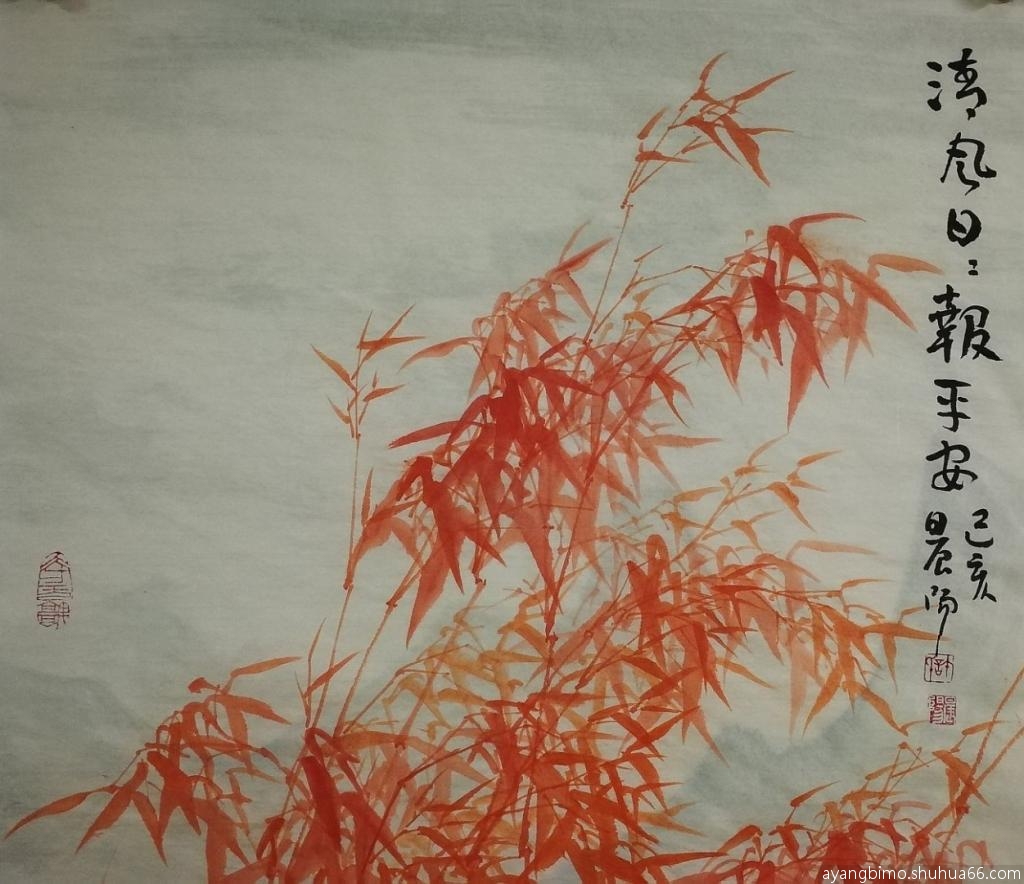 清风日〻報平安
己亥
晨陽
ayangbimo.shuhua66.com